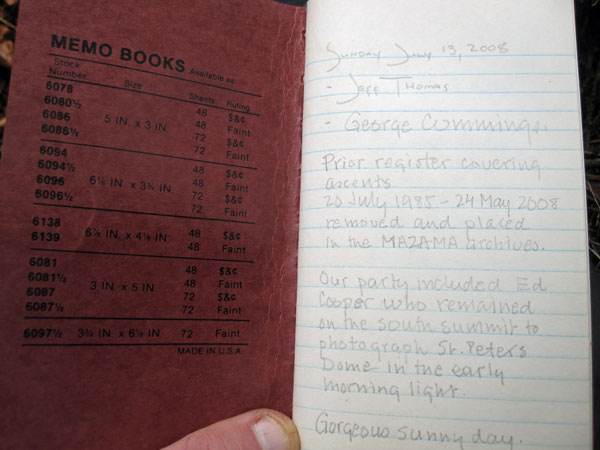 MEMO BOOKS Available as:
Stock
Number Size Sheets Ruling
6078 48 $&¢
6080½ 48 Faint
6086 5 IN. x 3 IN. 72 $&¢
6086½ 72 Faint
6094 48 $&¢
6094½ 48 Faint
6096 IN. x 3¾ IN. 72 $&¢
6096½ 72 Faint
6138 48 $&¢
6139 IN. x IN. 48 Faint
6081 48 $&¢
6081½ 48 Faint
6087 3 IN. x 5 IN. 72 $&¢
6087½ 72 Faint
6097½ 3¾ IN. x IN. 72 Faint
MADE IN U.S.A.
Sunday July 13, 2008
- Jeff Thomas
- George Cummings.
Prior register covering
ascents
20 July 1985 - 24 May 2008
removed and placed
in the MAZAMA archives.
Our party included Ed
Cooper who remained
on the south summit to
photograph St. Peters
Dome in the early
morning light.
Gorgeous sunny day.